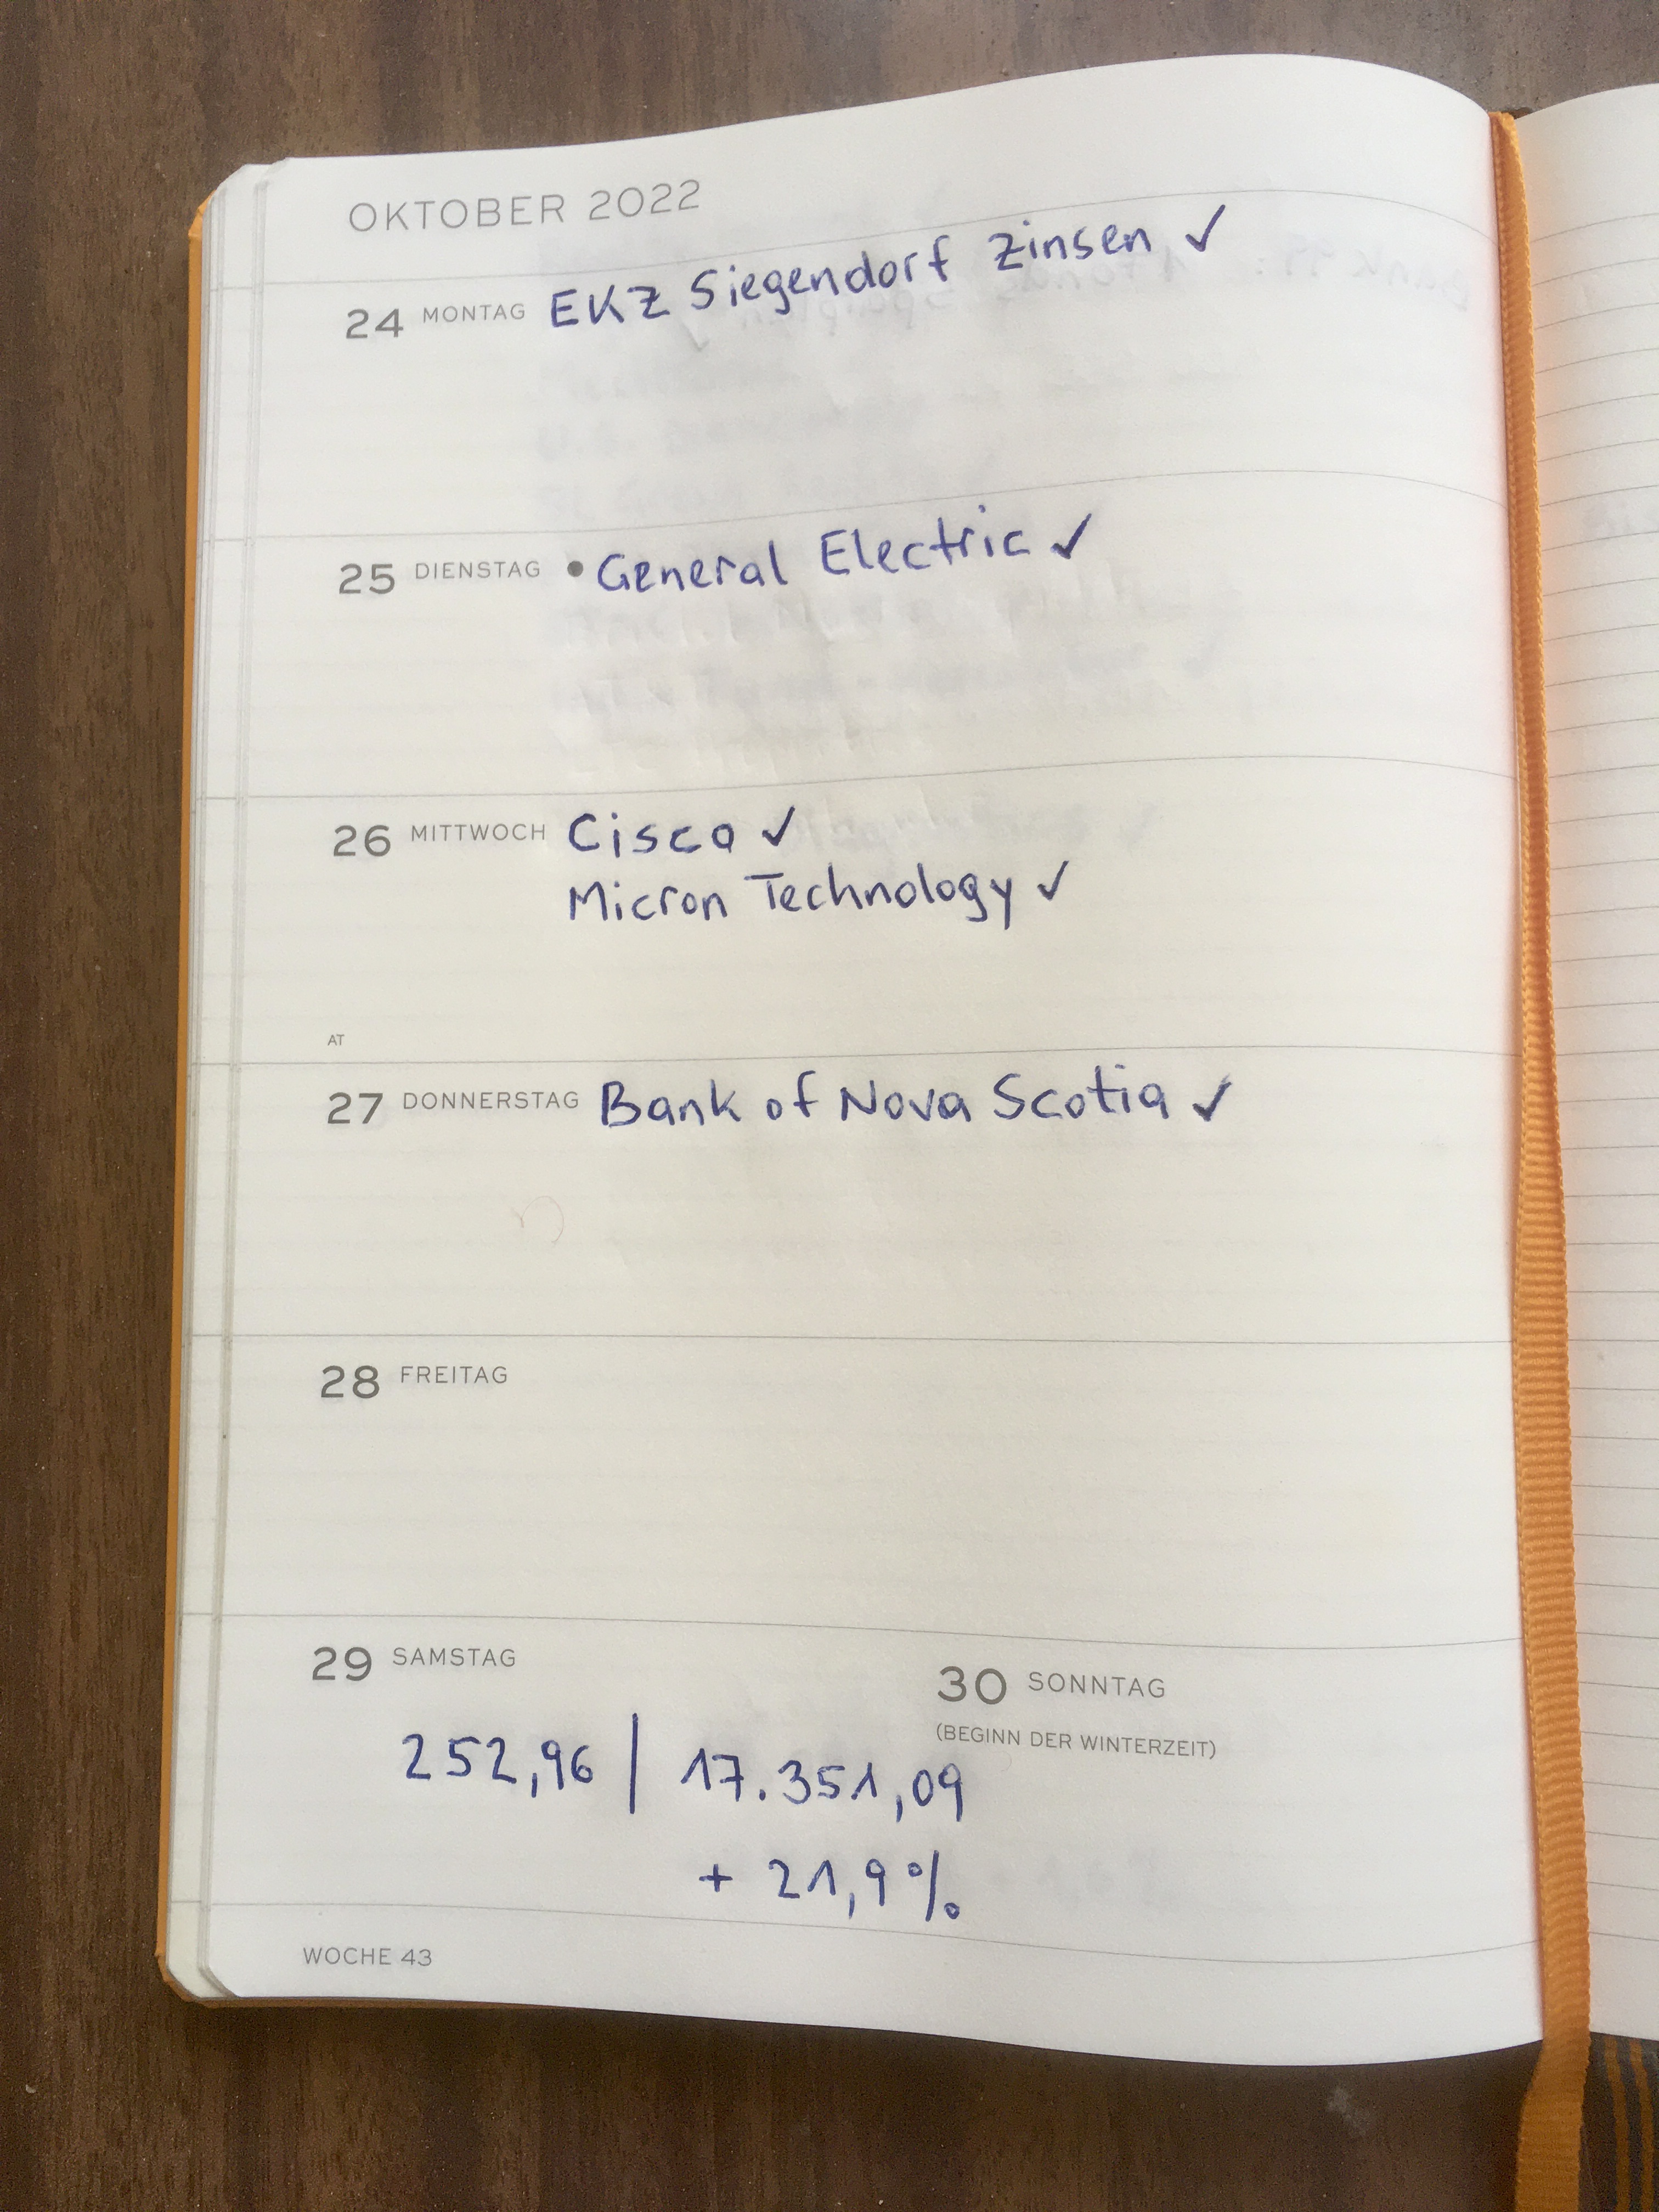 OKTOBER 2022
24 MONTAG EKZ Siegendorf Zinsen ✓
25 DIENSTAG • General Electric ✓
26 MITTWOCH Cisco ✓
Micron Technology ✓
AT
27 DONNERSTAG Bank of Nova Scotia ✓
28 FREITAG
29 SAMSTAG
30 SONNTAG
(BEGINN DER WINTERZEIT)
252,96 | 17.351,09
+ 21,9%
WOCHE 43